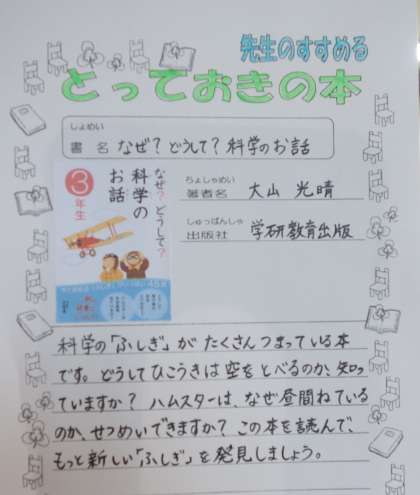 先生のすすめる
とっておきの本
しょめい
書名 なぜ?どうして?科学のお話
ちょしゃめい
著者名 大山 光晴
しゅっぱんしゃ
出版社 学研教育出版
なぜ?どうして?
科学の
お話
3年生
科学の「ふしぎ」がたくさんつまっている本
です。どうしてひこうきは空をとべるのか、知っ
ていますか? ハムスターは、なぜ昼間ねている
のか、せつめいできますか? この本を読んで、
もっと新しい「ふしぎ」を発見しましょう。